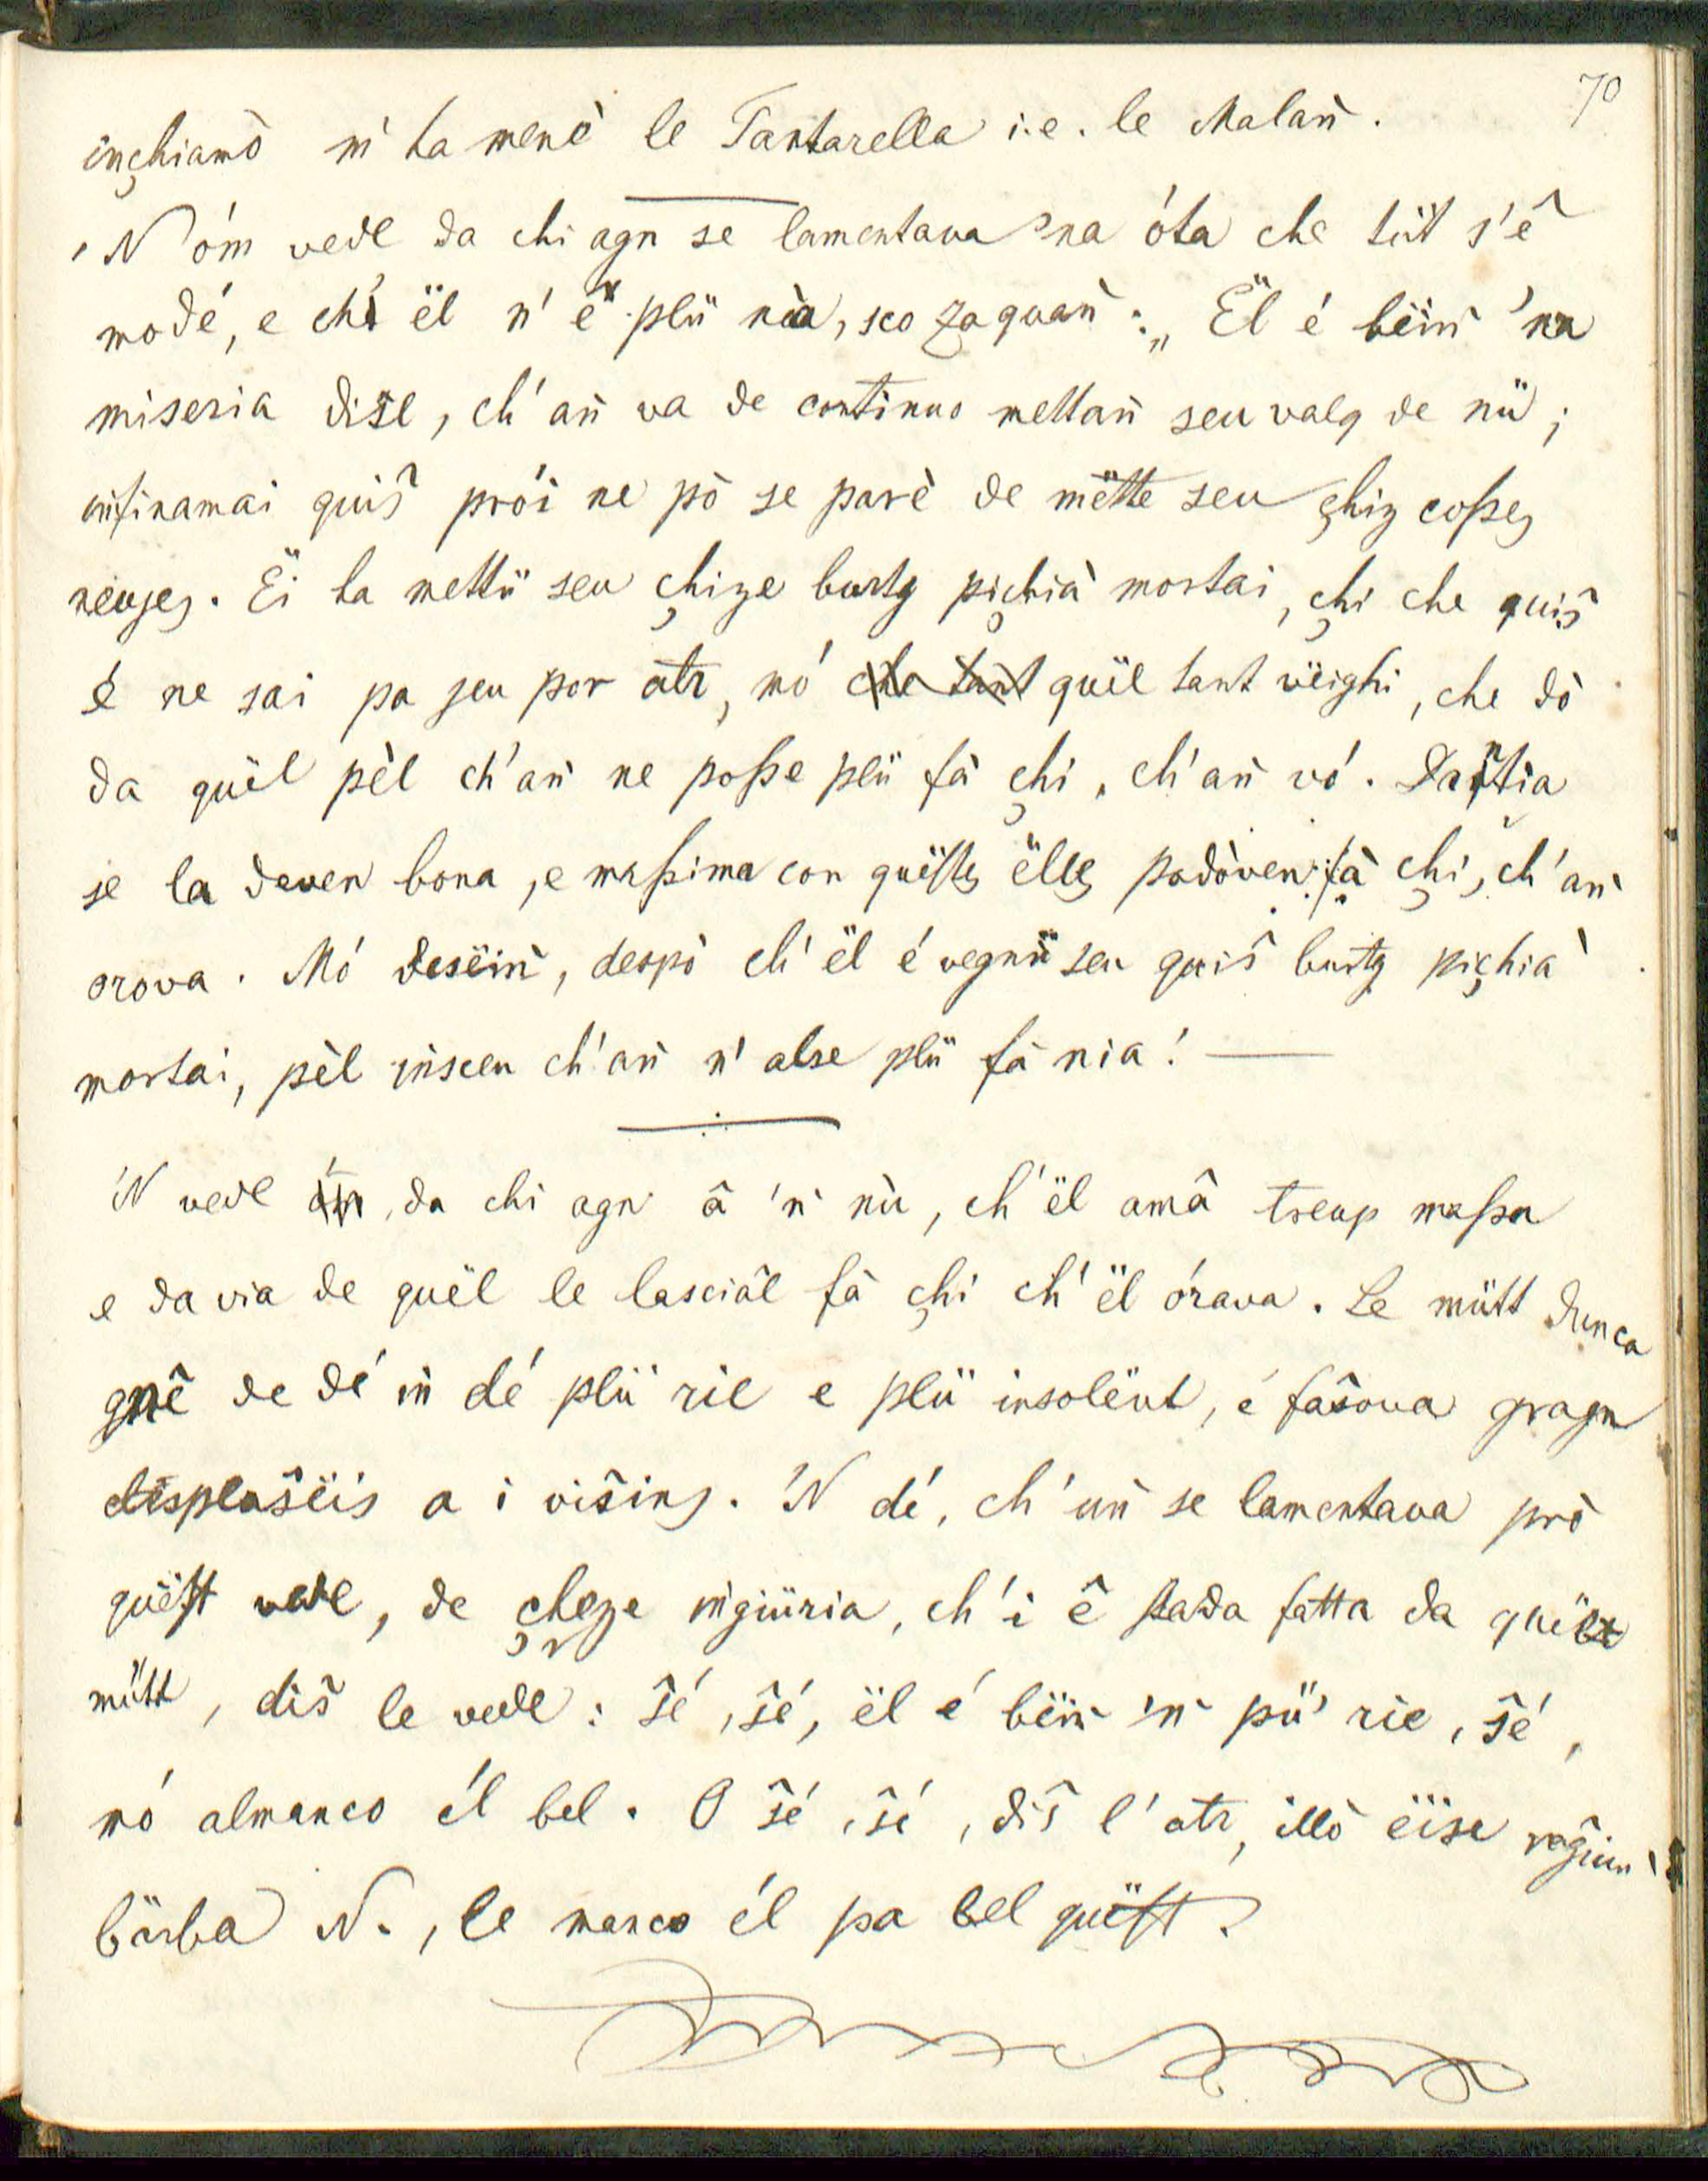 70
inçhiamò m' ha menè le Tantarella i.e. le Malañ.
'N óm vedl da chi agn se lamentava 'na óta che tüt s'ê
modé, e chi ël n' ê plü nia, sco zaquañ: „ Ël é bëiñ 'na
miseria dise, ch' añ va de continuo mettañ seu valg de nü;
infinamai quiŝ prói ne pò se parè de mëtte seu çhiz coßes
neujes. Ëi ha mettü seu çhize burtg piçhià mortai, çhi che quiŝ
é ne sai pa jeu por atr, mó che tant quël tant vëighi, che dò
da quël pèl ch' añ ne poße plü fà çhi, ch' añ vó. Dañtia
se la deven bona, e maßima con quëstes ëlles podòven fà çhi, ch' añ
orova. Mó desëiñ, despò ch' ël é vegnü seu quiŝ burtg piçhià
mortai, pèl insceu ch' añ n' alse plü fà nia!
'N vedl óm, da chi agn â 'ñ nù, ch' ël amâ treup maßa
e da via de quël le lasciâl fà çhi ch' ël órava. Le mütt dunca
gnê de dé in dé plü rie e plü insolënt, é faŝova gragn
despleŝëis a i viŝins. 'N dé, ch' uñ se lamentava prò
quëst vedl, de çhezze ingiüria, ch' i ê stada fatta da quël
mütt, diŝ le vedl: ŝé, ŝé, ël é bëiñ 'ñ pü' rie, ŝé,
mó almanco él bel. O ŝé, ŝé, diŝ l' atr, illò ëise reĝiun,
bärba N., le manco él pa bel quëst.